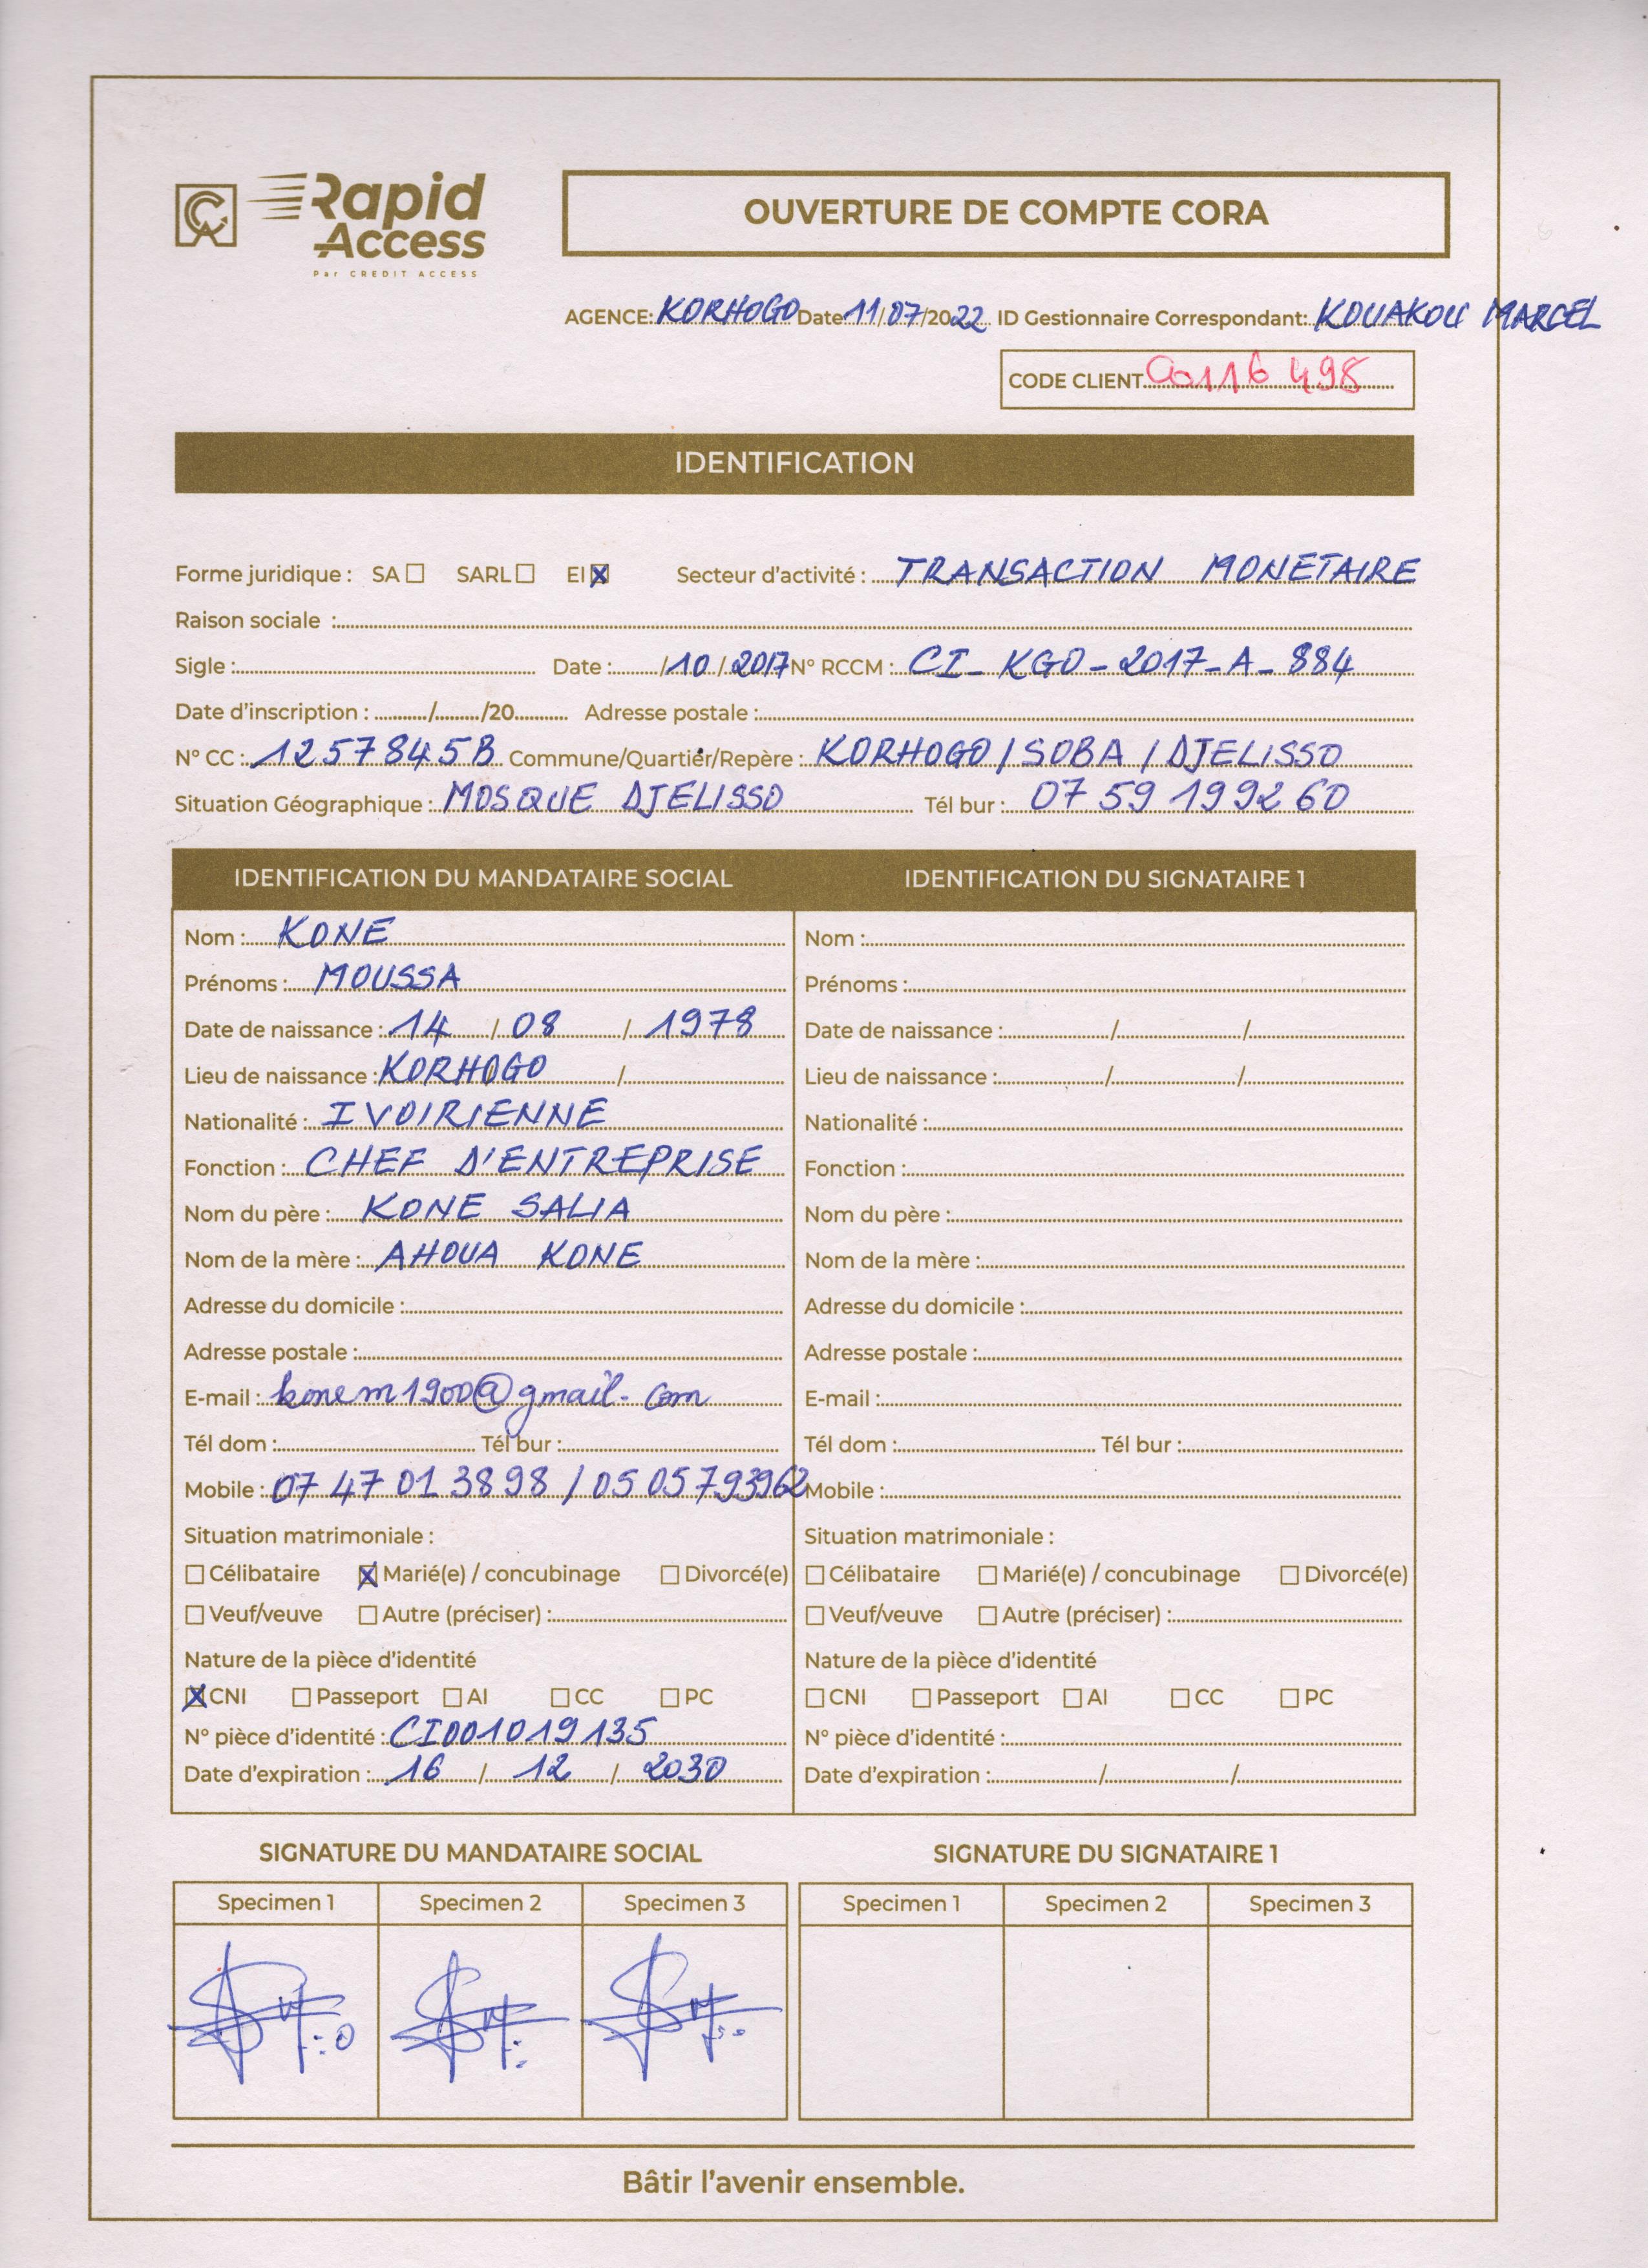 Rapid
Access
Par CREDIT ACCESS
OUVERTURE DE COMPTE CORA
AGENCE: KORHOGO Date 11/07/2022 ID Gestionnaire Correspondant: KOUAKOU MARCEL
CODE CLIENT 00116498
IDENTIFICATION
Forme juridique : SA ☐ SARL ☐ EI ☒ Secteur d'activité : TRANSACTION MONETAIRE
Raison sociale :
Sigle : Date : / 10 / 2017 N° RCCM : CI_KGO-2017-A-884
Date d'inscription : / /20 Adresse postale :
N° CC : 1257845B Commune/Quartier/Repère : KORHOGO / SOBA / DJELISSO
Situation Géographique : MOSQUE DJELISSO Tél bur : 07 59 19 92 60
IDENTIFICATION DU MANDATAIRE SOCIAL
Nom : KONE
Prénoms : MOUSSA
Date de naissance : 14 / 08 / 1978
Lieu de naissance : KORHOGO /
Nationalité : IVOIRIENNE
Fonction : CHEF D'ENTREPRISE
Nom du père : KONE SALIA
Nom de la mère : AHOUA KONE
Adresse du domicile :
Adresse postale :
E-mail : konem1900@gmail.com
Tél dom : Tél bur :
Mobile : 07 47 01 38 98 / 05 05 793962
Situation matrimoniale :
☐ Célibataire ☒ Marié(e) / concubinage ☐ Divorcé(e)
☐ Veuf/veuve ☐ Autre (préciser) :
Nature de la pièce d'identité
☒ CNI ☐ Passeport ☐ AI ☐ CC ☐ PC
N° pièce d'identité : CI001019135
Date d'expiration : 16 / 12 / 2030
IDENTIFICATION DU SIGNATAIRE 1
Nom :
Prénoms :
Date de naissance : / /
Lieu de naissance : / /
Nationalité :
Fonction :
Nom du père :
Nom de la mère :
Adresse du domicile :
Adresse postale :
E-mail :
Tél dom : Tél bur :
Mobile :
Situation matrimoniale :
☐ Célibataire ☐ Marié(e) / concubinage ☐ Divorcé(e)
☐ Veuf/veuve ☐ Autre (préciser) :
Nature de la pièce d'identité
☐ CNI ☐ Passeport ☐ AI ☐ CC ☐ PC
N° pièce d'identité :
Date d'expiration : / /
SIGNATURE DU MANDATAIRE SOCIAL
Specimen 1 Specimen 2 Specimen 3
SIGNATURE DU SIGNATAIRE 1
Specimen 1 Specimen 2 Specimen 3
Bâtir l'avenir ensemble.